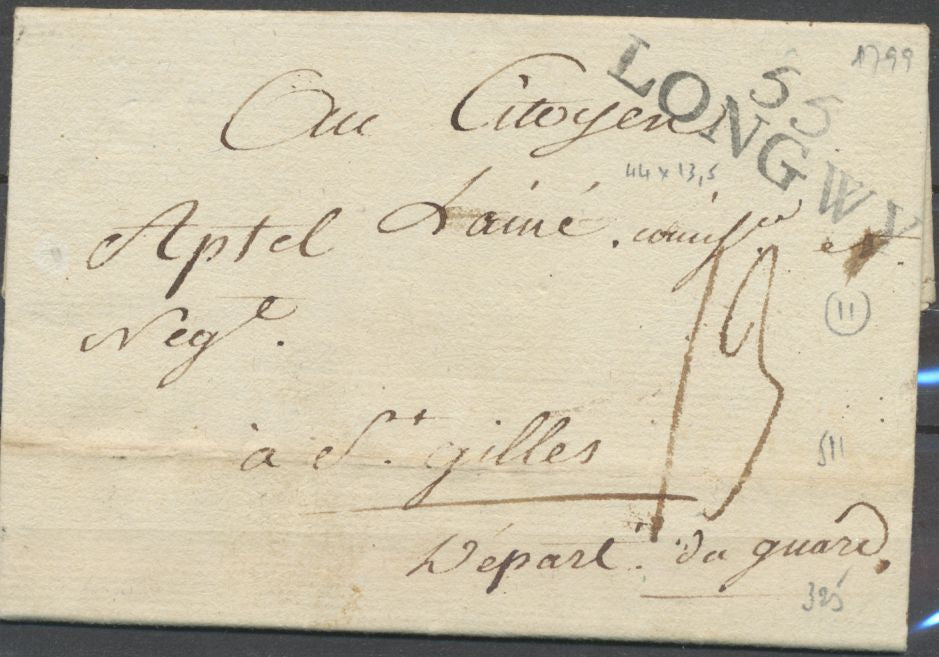 1799
55
LONGWY
Au Citoyen
44 x 13,5
Aptel Lainé. comisre et
Negt.
11
13
à St. gilles
511
Départ. du guard.
325